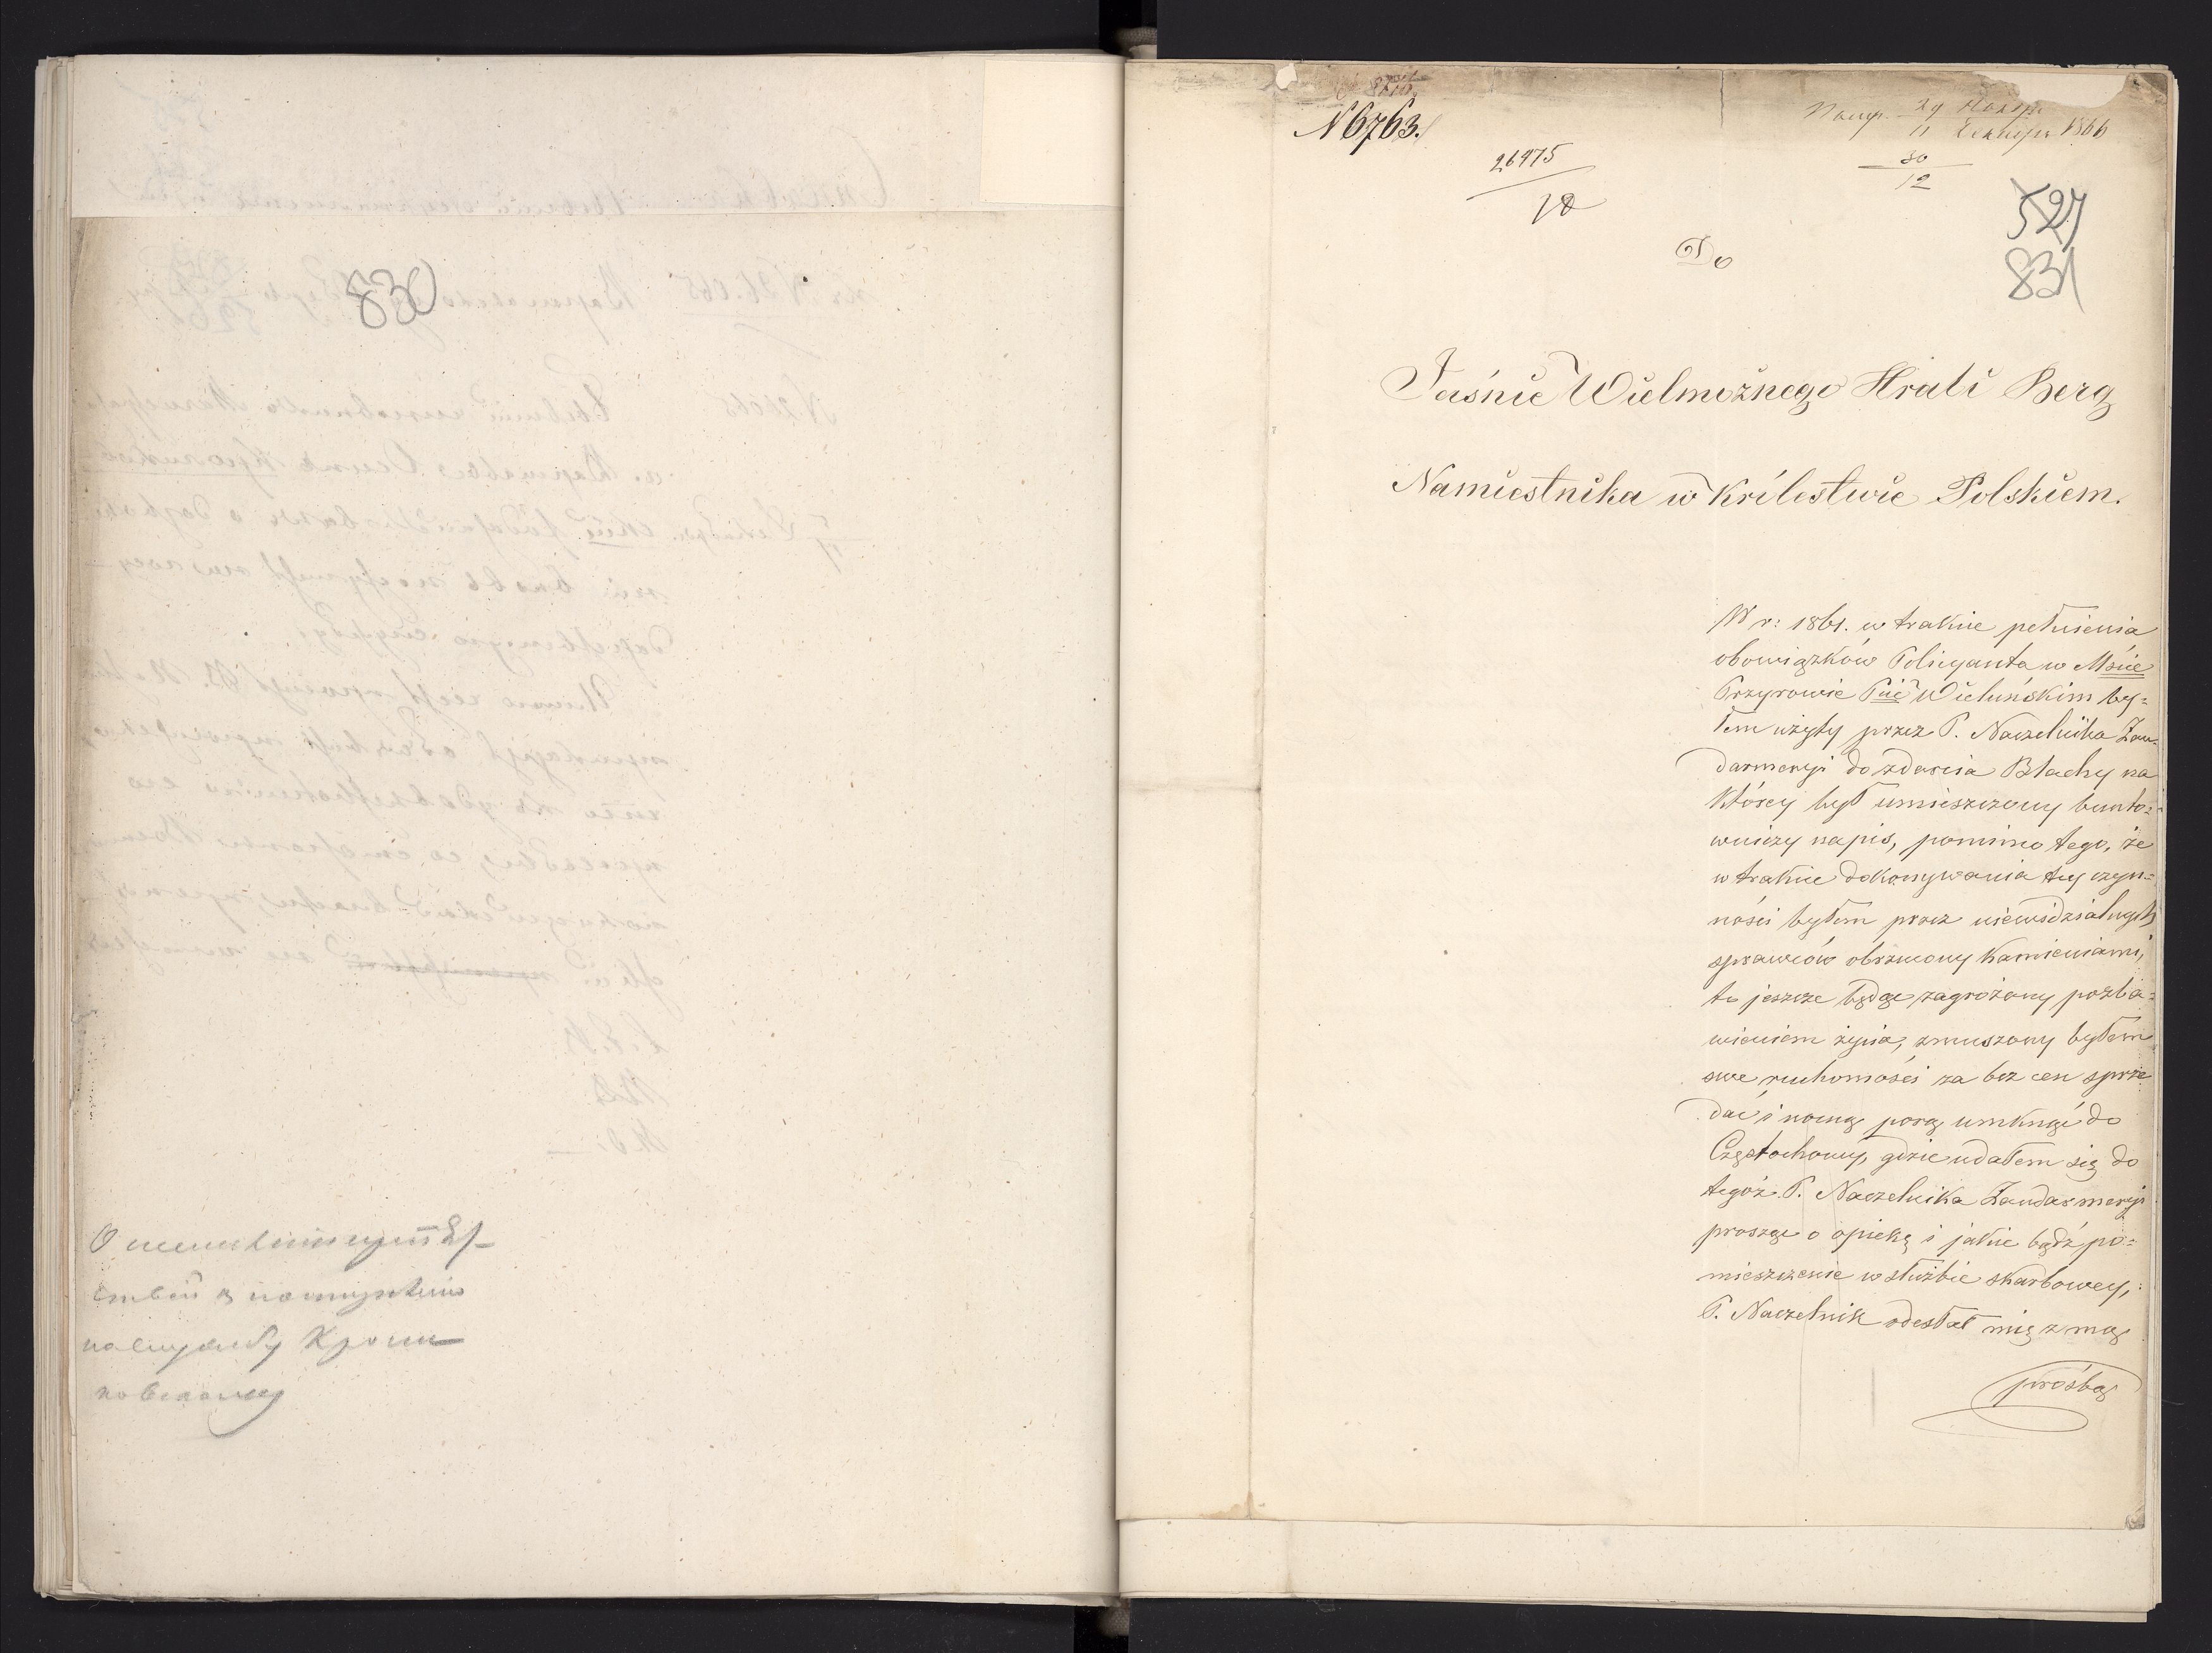 830
по службу
N 6763.
26475
18
29
11 1866
30
12
527
831
Do
Jaśnie Wielmożnego Hrabi Berg
Namiestnika w Królestwie Polskiem.
W r: 1861. w trakcie pełnienia
obowiązków Policyanta w Mście
Przyrowie Pcie Wieluńskim by=
łem użyty przez P. Naczelnika Żan=
darmeryi do zdarcia Blachy na
którey był umieszczony bunto=
wniczy napis, pomimo tego, że
w trakcie dokonywania tey czyn=
ności byłem przez niewidzialnych
sprawców obrzucony kamieniami,
to jeszcze będąc zagrożony pozba=
wieniem życia, zmuszony byłem
swe ruchomości za bez cen sprze
dać i nocną porą umknąć do
Częstochowy, gdzie udałem się do
tegoż P. Naczelnika Żandarmeryi
prosząc o opiekę i jakie bądź po=
mieszczenie w służbie skarbowey,
P. Naczelnik odesłał mię z mą
prośbą